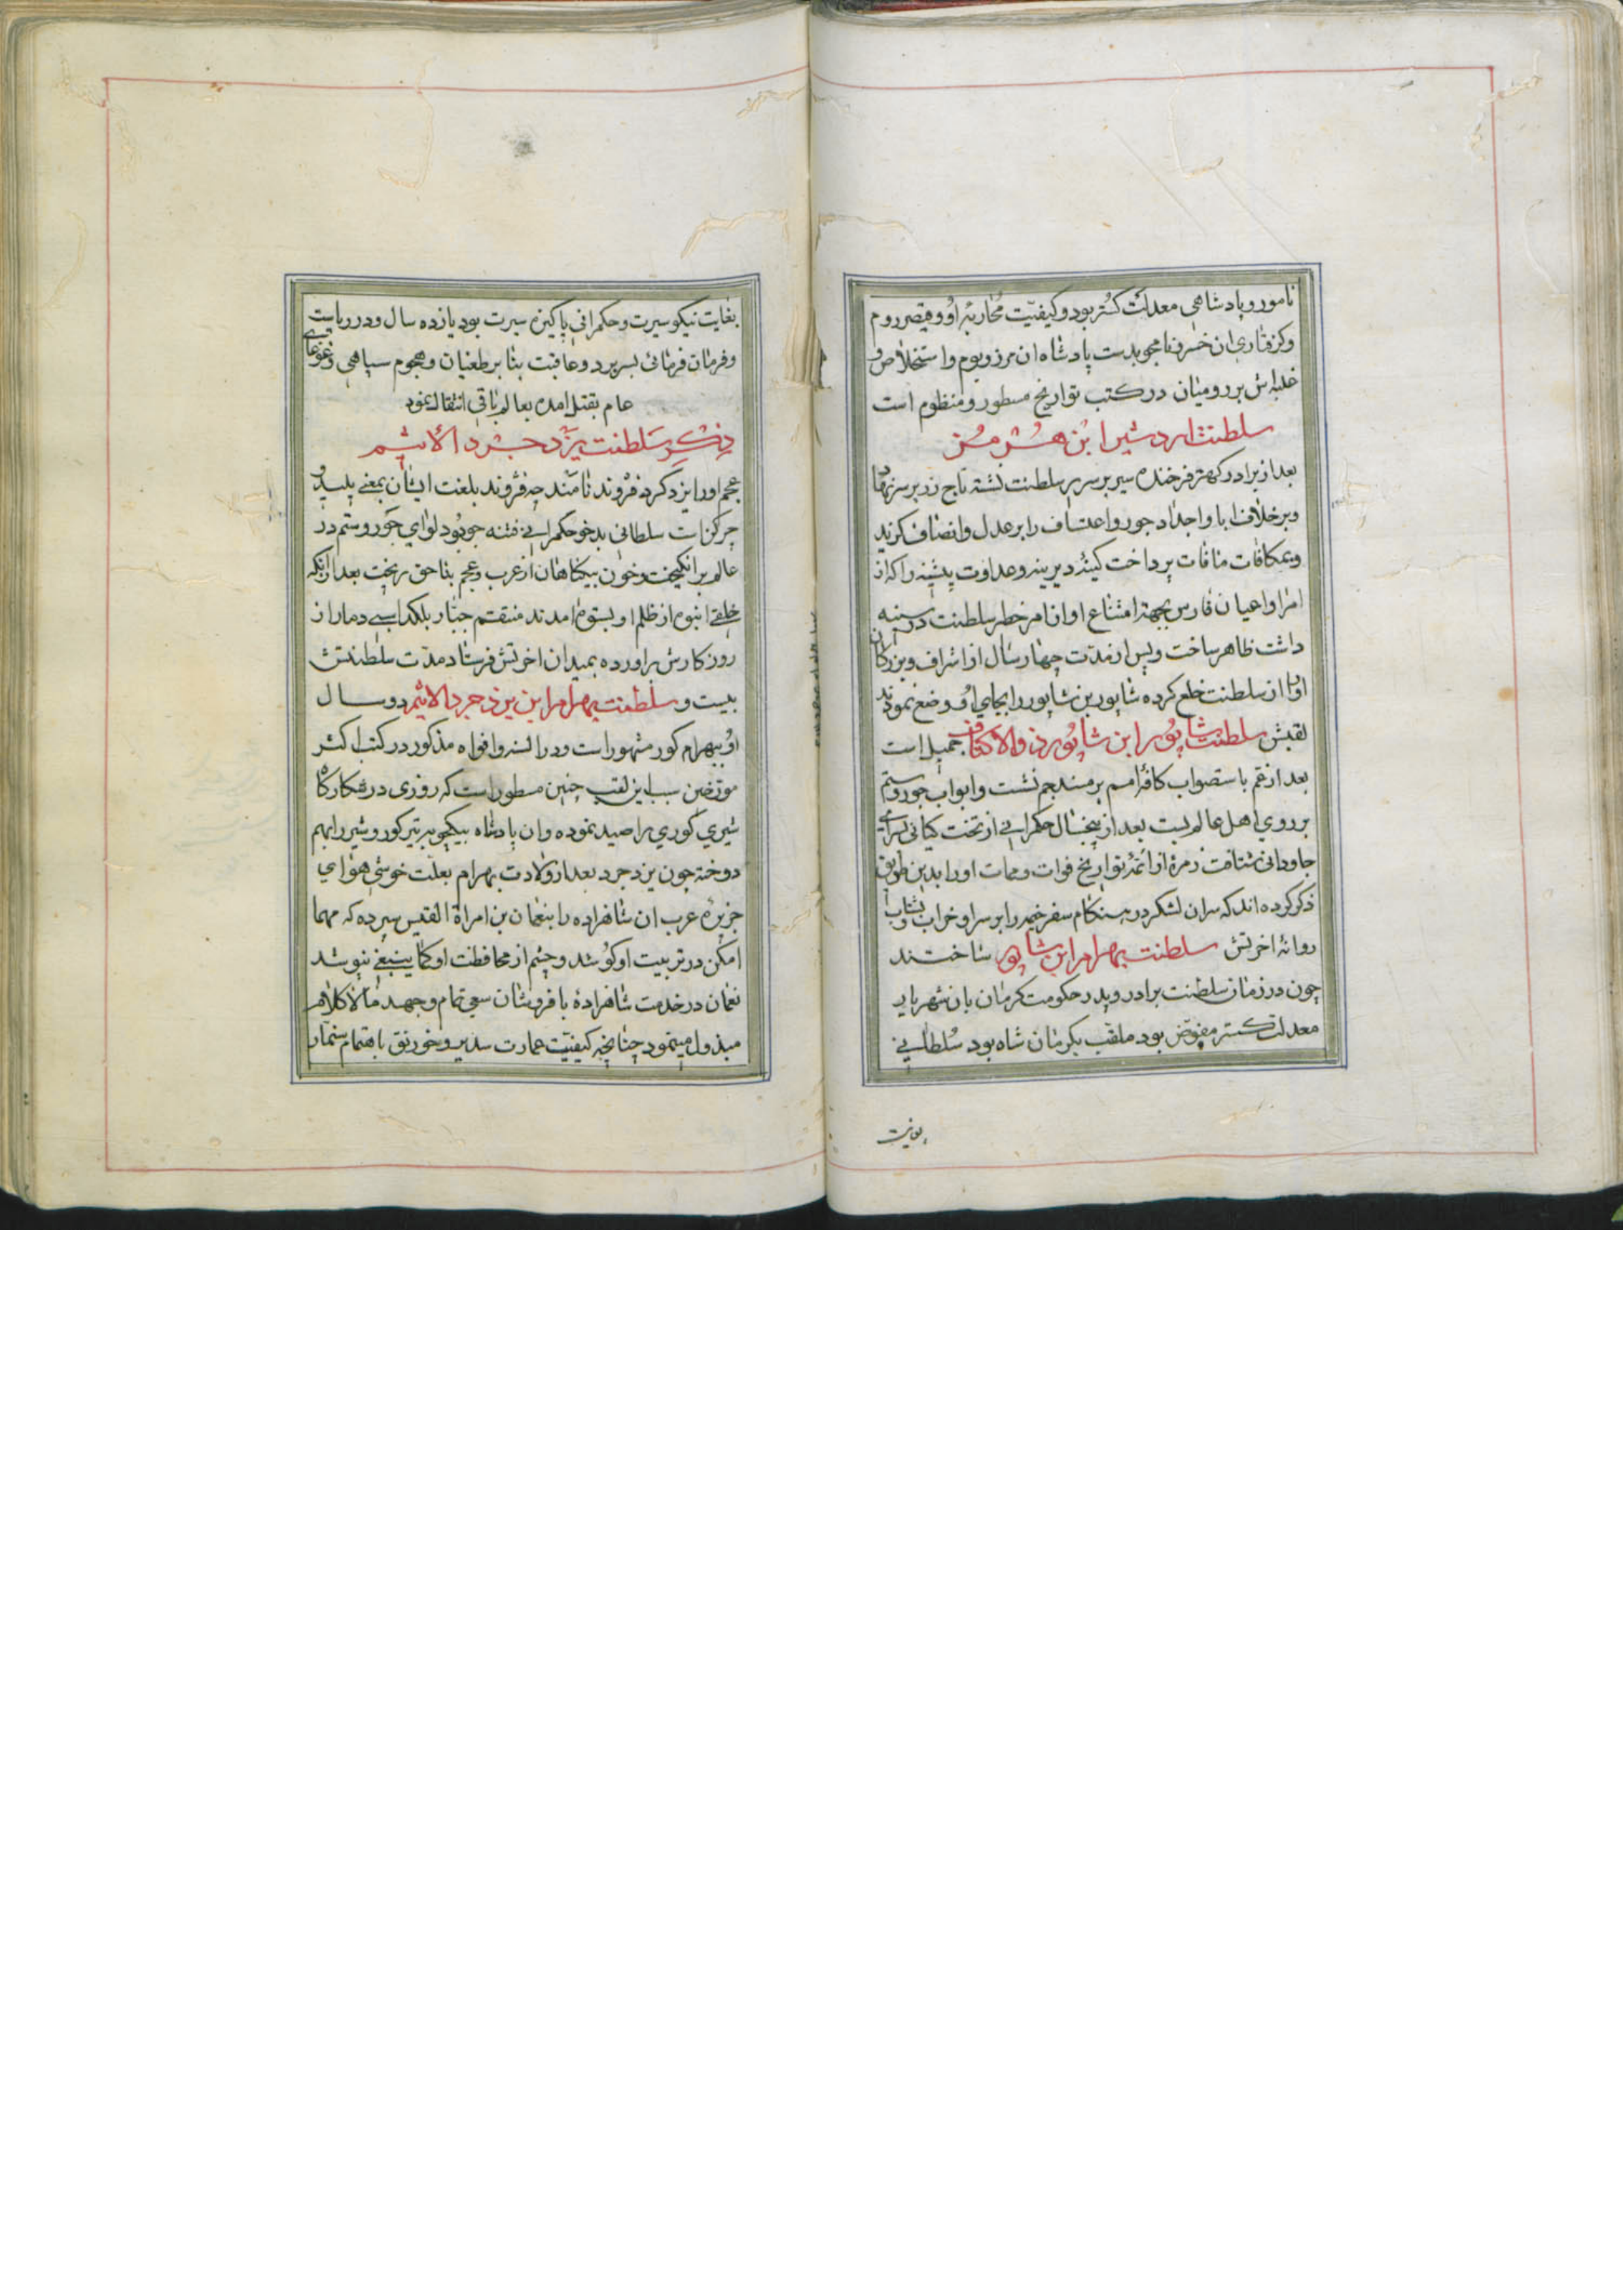 نامور و پادشاهی معدلت کستر بود و کیفیّت محاربهٔ او و قیصر روم
و کرفتاری ان خسرو نامجو بدست پادشاه ان مرز و بوم و استخلاص و
غلبه‌اش بر رومیان در کتب تواریخ مسطور و منظوم است
سلطنت اردشیر ابن هرمز
بعد از برادر کهتر فرخنده سیر بر سریر سلطنت نشسته تاج زر بر سر نهاد
و بر خلاف ابا و اجداد جور و اعتساف را بر عدل و انصاف کزید
و بمکافات مافات پرداخت کینهٔ دیرینه و عداوت پیشینه را که از
امرا و اعیان فارس بجهة امتناع او از امر خطیر سلطنت در سینه
داشت ظاهر ساخت و پس از مدّت چهار سال از اشراف و بزرکان
او را از سلطنت خلع کرده شاپور بن شاپور را بجای او وضع نمودند
لقبش سلطنت شاپور ابن شاپور ذوالاکتاف جمیل است
بعد از عم باستصواب کافهٔ امم بر مسند جم نشست و ابواب جور و ستم
بر روی اهل عالم ببست بعد از پنجسال حکمرانی از تخت کیانی بسرای
جاودانی شتافت زمرهٔ از ائمهٔ تواریخ فوات و ممات او را بدین طریق
ذکر کرده‌اند که سران لشکر در هنکام سفر خیمه را بر سر او خراب و بشتاب
روانهٔ اخرتش سلطنت بهرام ابن شاپور ساختند
چون در زمان سلطنت برادر و پدر حکومت کرمان بان شهریار
معدلت کستر مفوّض بود ملقب بکرمان شاه بود سلطانی
بغایت نیکو سیرت و حکمرانی پاکیزه سیرت بود یازده سال و در ریاست
و فرمان فرمائی بسر برد و عاقبت بنا بر طغیان و هجوم سپاهی و غوغای
عام بقتل امده بعالم باقی انتقال نمود
ذکر سلطنت یزدجرد الاثیم
عجم او را یزد کرد فزوند نامند چه فزوند بلغت ایشان بمعنی پلید و
چرکن است سلطانی بدخو حکمرانی فتنه جو بود لوای جور و ستم در
عالم بر انکیخت و خون بیکناهان از عرب و عجم بناحق ریخت بعد از انکه
خلقی انبوه از ظلم او بستوه امدند منتقم جبّار بلکد اسبی دمار از
روزکارش براورده بمیدان اخرتش فرستاد مدّت سلطنتش
بیست و سلطنت بهرام ابن یزدجرد الاثیم دو سال
او ببهرام کور مشهور است و در السنه و افواه مذکور در کتب اکثر
مورّخین سبب این لقب چنین مسطور است که روزی در شکارکاه
شیری کوری را صید نموده و ان پادشاه بیکچوبه تیر کور و شیر را بهم
دوخته چون یزدجرد بعد از ولادت بهرام بعلّت خوشی هوای
جزیرهٔ عرب ان شاهزاده را بنعمان بن امراة القیس سپرده که مهما
امکن در تربیت او کوشد و چشم از محافظت او کما ینبغی نپوشد
نعمان در خدمت شاهزادهٔ با فرّ و شان سعی تمام و جهد مالا کلام
مبذول مینمود چنانچه کیفیّت عمارت سدیر و خورنق باهتمام سنمار